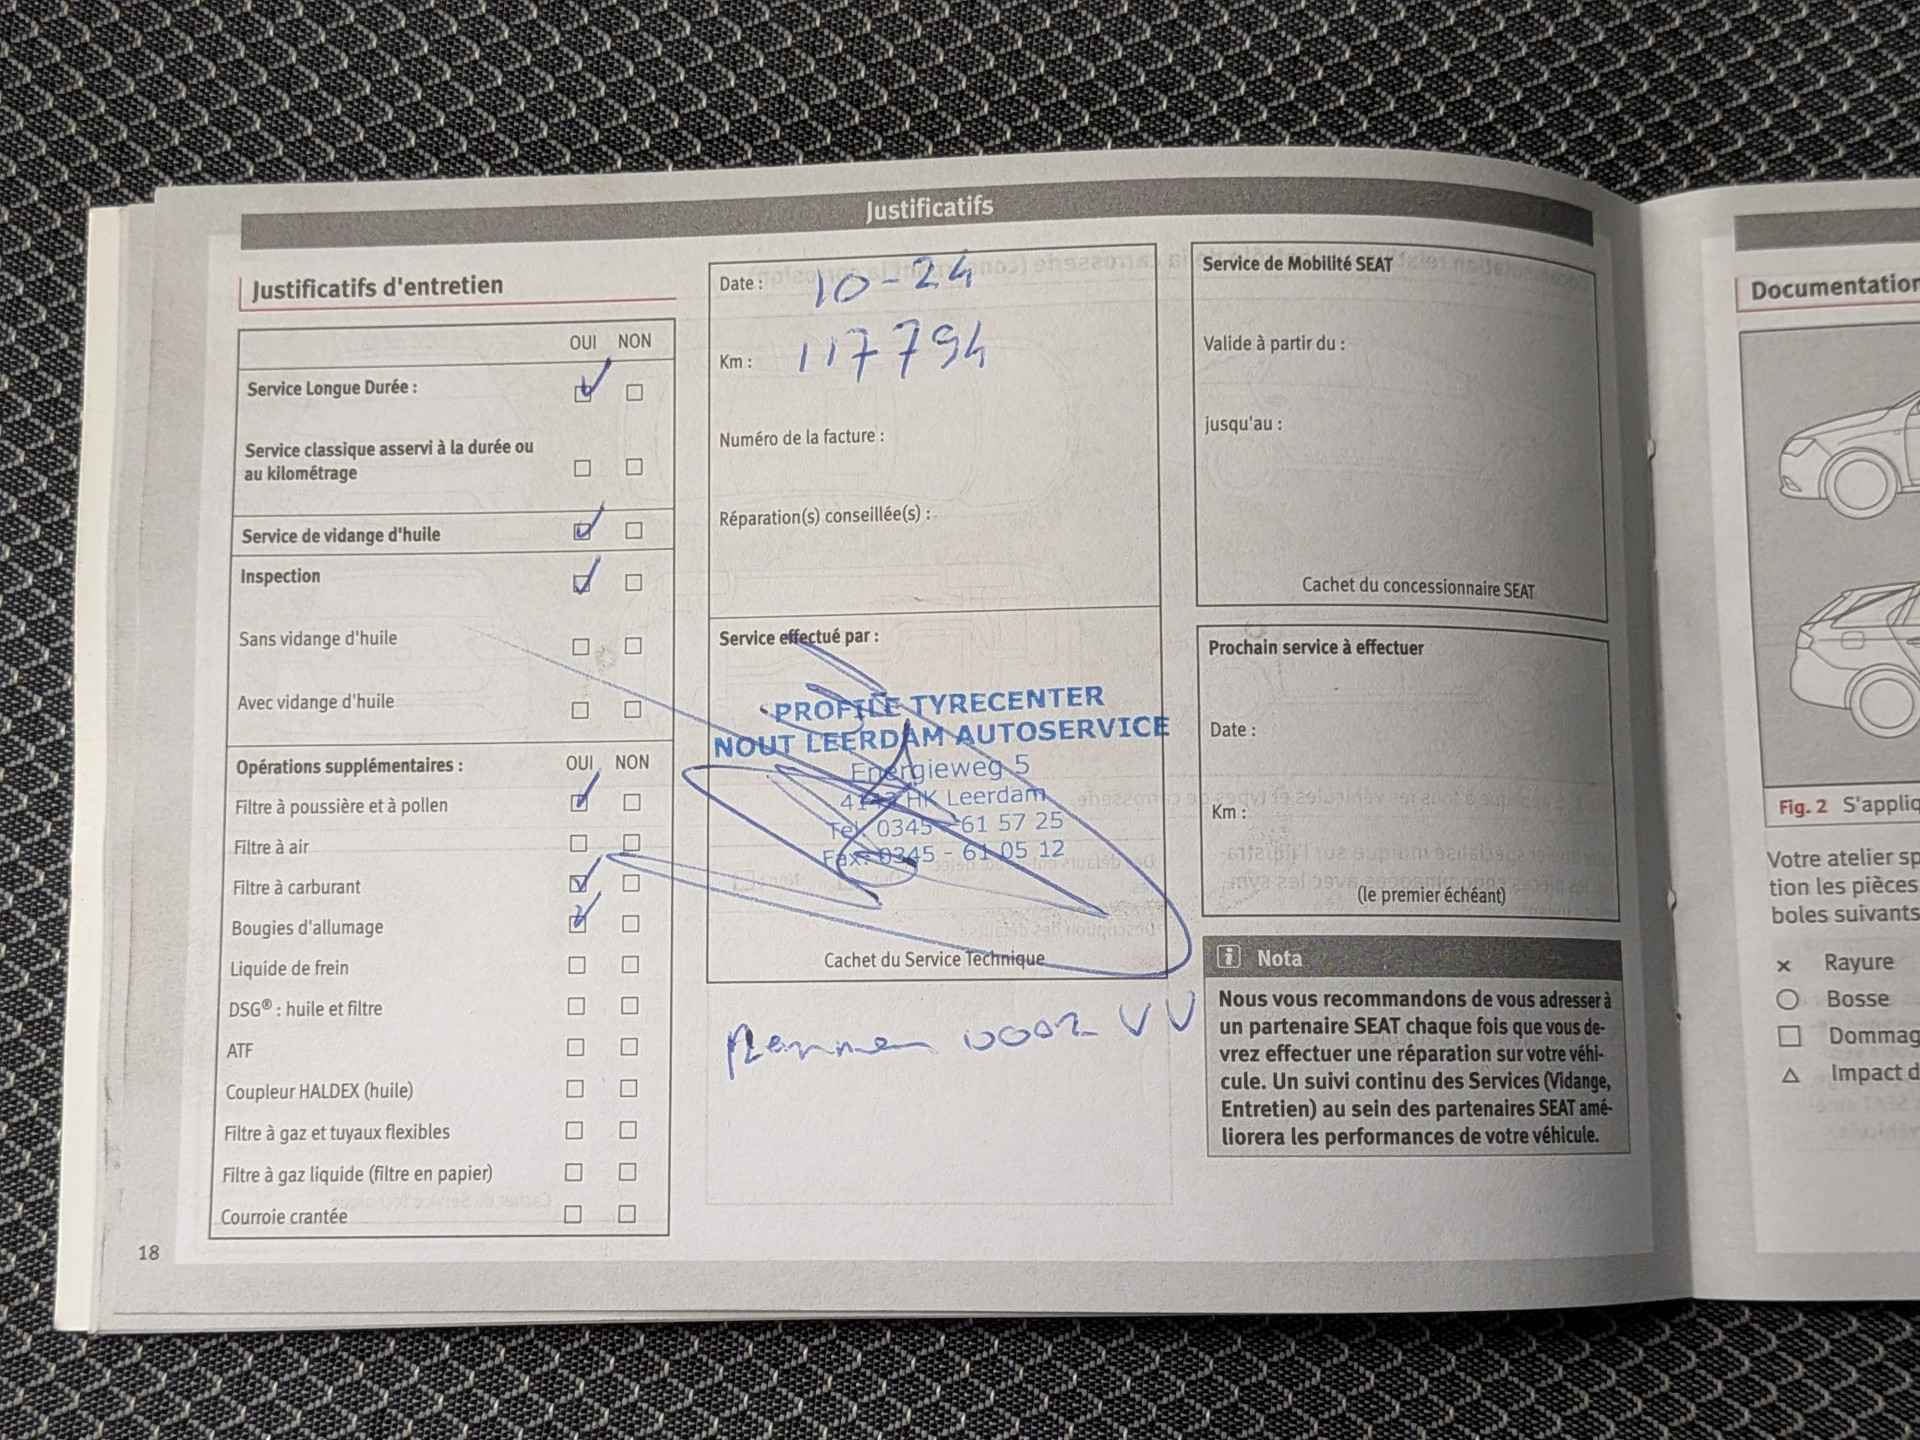 Justificatifs
Justificatifs d'entretien
OUI NON
Service Longue Durée :
Service classique asservi à la durée ou
au kilométrage
Service de vidange d'huile
Inspection
Sans vidange d'huile
Avec vidange d'huile
Opérations supplémentaires : OUI NON
Filtre à poussière et à pollen
Filtre à air
Filtre à carburant
Bougies d'allumage
Liquide de frein
DSG® : huile et filtre
ATF
Coupleur HALDEX (huile)
Filtre à gaz et tuyaux flexibles
Filtre à gaz liquide (filtre en papier)
Courroie crantée
18
Date : 10-24
Km : 117794
Numéro de la facture :
Réparation(s) conseillée(s) :
Service effectué par :
PROFILE TYRECENTER
NOUT LEERDAM AUTOSERVICE
Energieweg 5
HK Leerdam
Tel. 0345 - 61 57 25
Fax. 0345 - 61 05 12
Cachet du Service Technique
Remmen
Service de Mobilité SEAT
Valide à partir du :
jusqu'au :
Cachet du concessionnaire SEAT
Prochain service à effectuer
Date :
Km :
(le premier échéant)
i Nota
Nous vous recommandons de vous adresser à
un partenaire SEAT chaque fois que vous de-
vrez effectuer une réparation sur votre véhi-
cule. Un suivi continu des Services (Vidange,
Entretien) au sein des partenaires SEAT amé-
liorera les performances de votre véhicule.
Documentation
Fig. 2 S'appliq
Votre atelier sp
tion les pièces
boles suivants
Rayure
Bosse
Dommag
Impact d